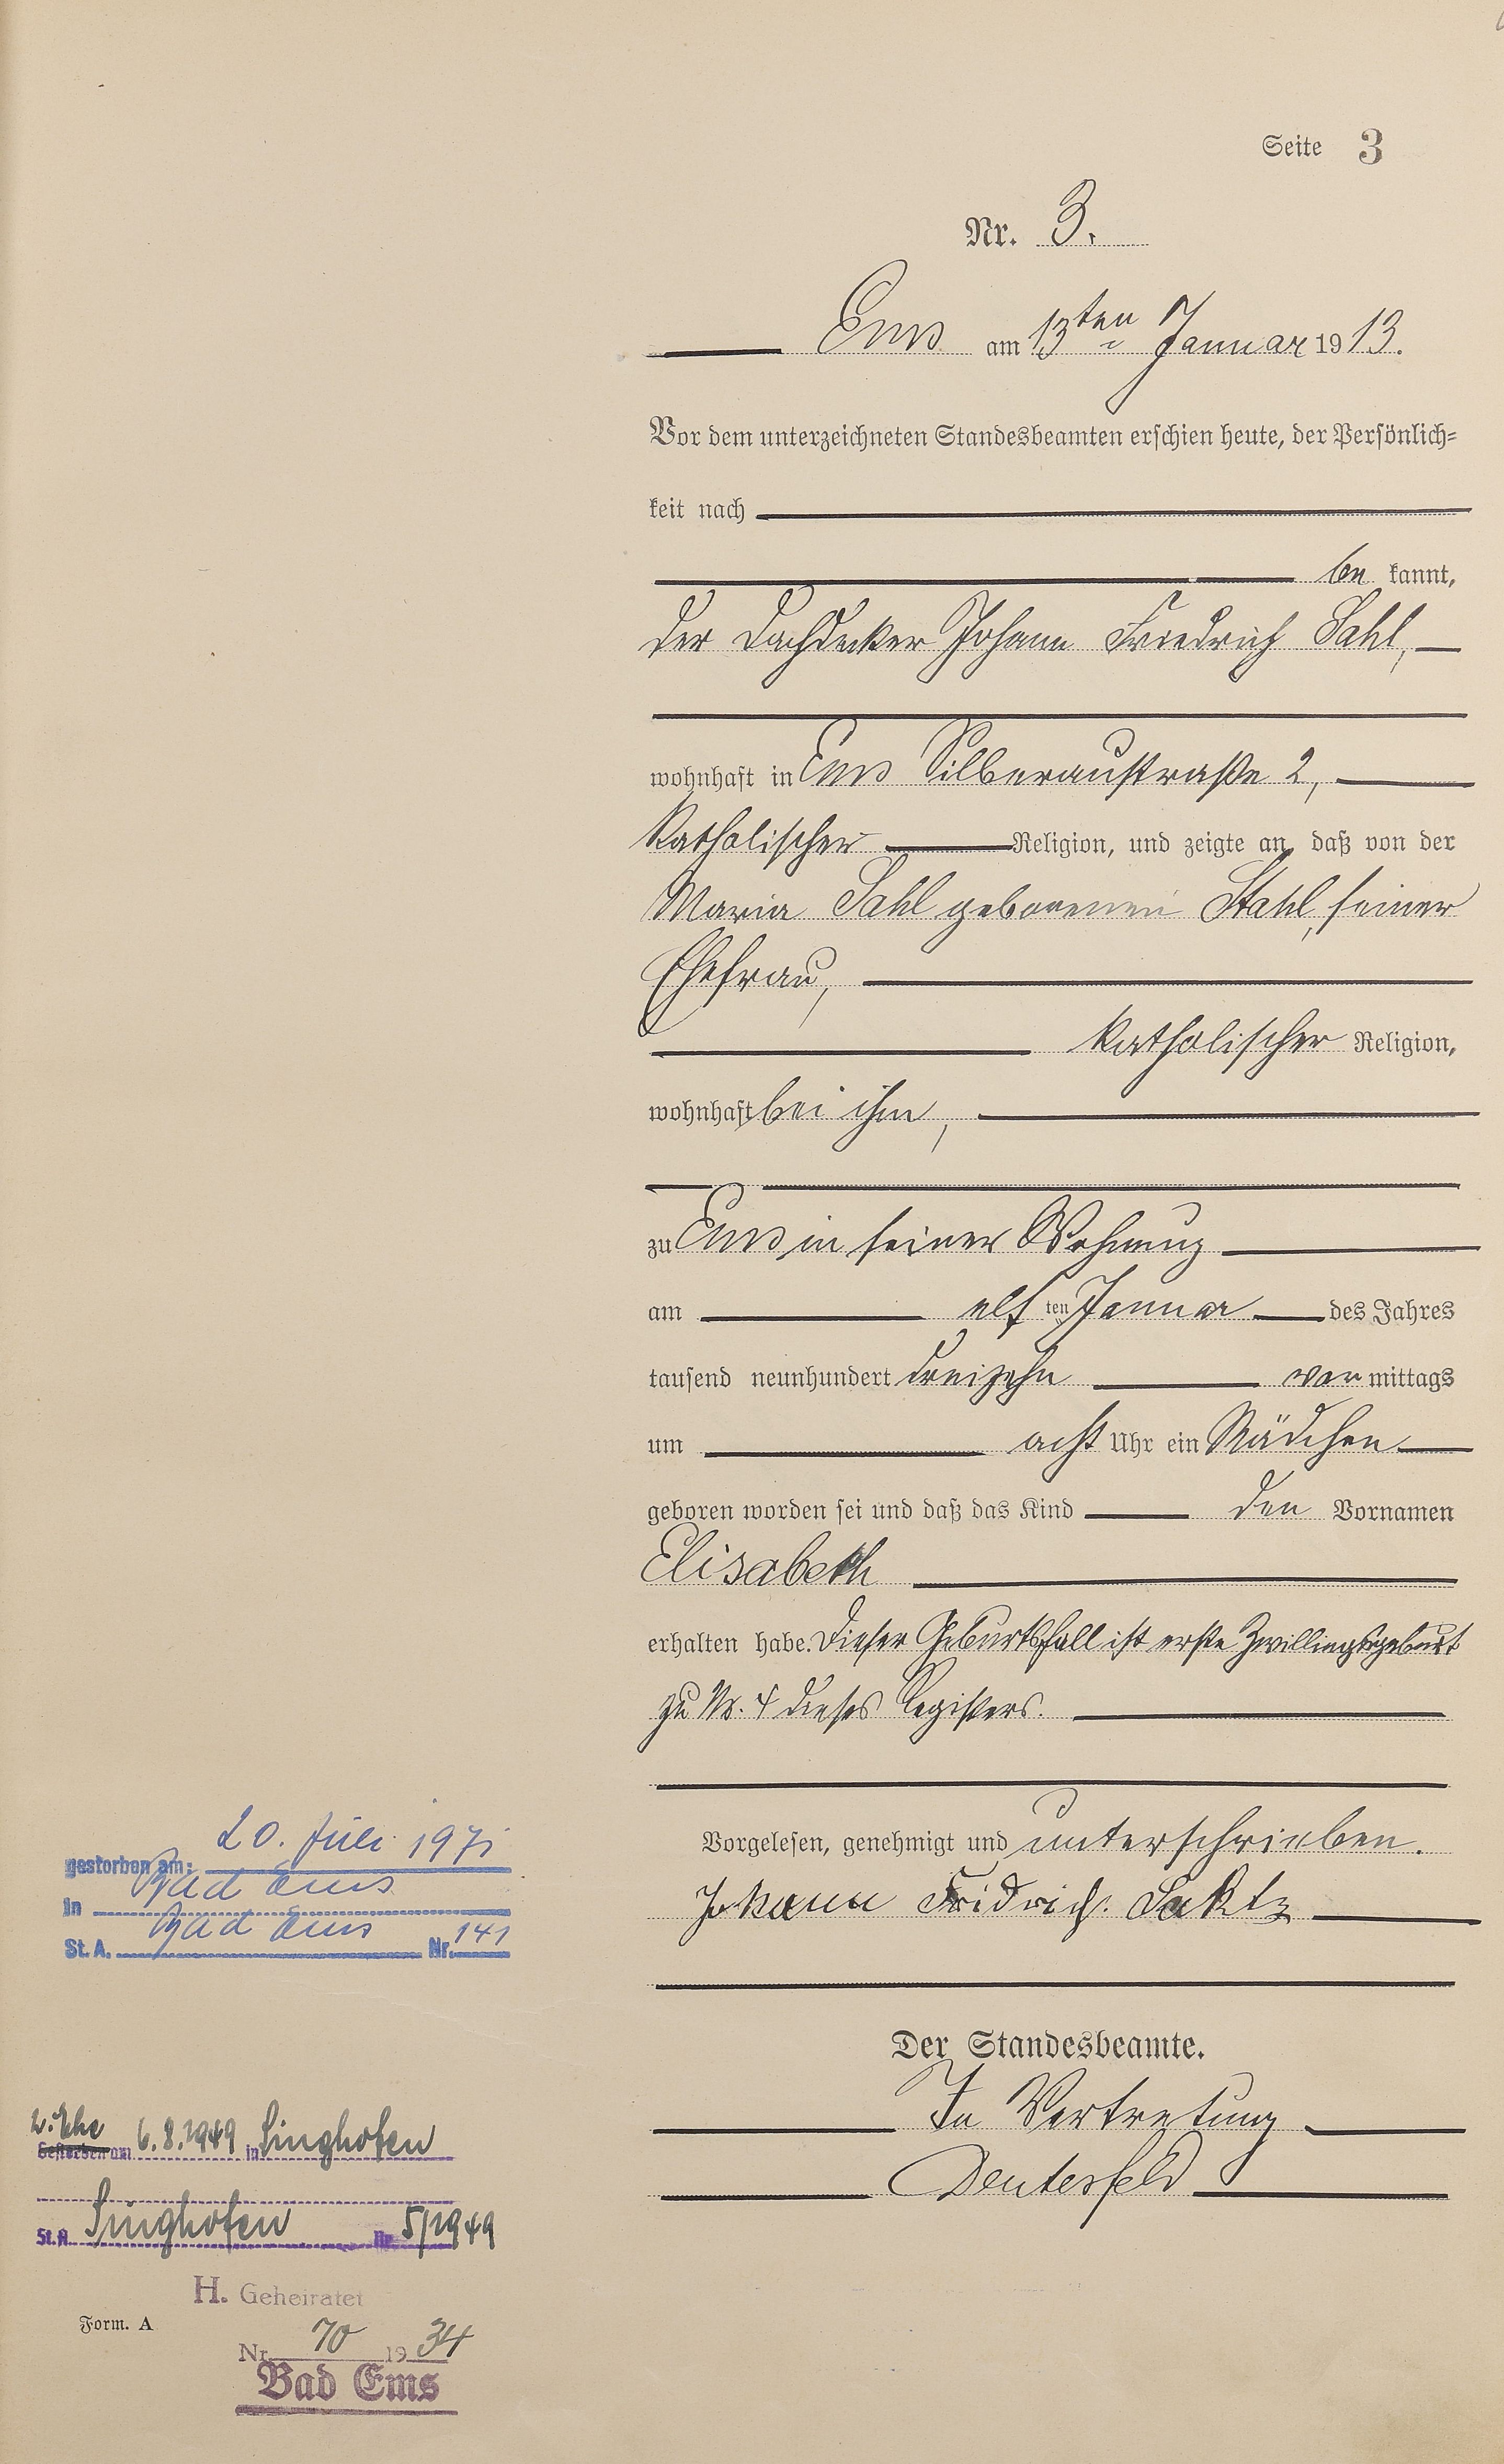 Seite 3
Nr. 3.
Ems am 13ten Januar 1913.
Vor dem unterzeichneten Standesbeamten erschien heute, der Persönlich=
keit nach
be kannt,
der Dachdecker Johann Friedrich Sahl,
wohnhaft in Ems Silberaustraße 2,
katholischer Religion, und zeigte an, daß von der
Maria Sahl geborenen Stahl, seiner
Ehefrau,
katholischer Religion,
wohnhaft bei ihm,
zu Ems in seiner Wohnung
am elf ten Januar des Jahres
tausend neunhundert dreizehn vor mittags
um acht Uhr ein Mädchen
geboren worden sei und daß das Kind den Vornamen
Elisabeth
erhalten habe. Dieser Geburtsfall ist erste Zwillingsgeburt
zu Nr. 4 dieses Registers.
Vorgelesen, genehmigt und unterschrieben.
Johann Fridrich.
Der Standesbeamte.
In Vertretung
Deutesfeld
gestorben am: 20. Juli 1971
in Bad Ems
St. A. Bad Ems Nr. 141
2. Ehe
Gestorben am 6.8.1949 in Singhofen
St. A. Singhofen Nr. 5/1949
H. Geheiratet
Form. A
Nr. 70 1934
Bad Ems